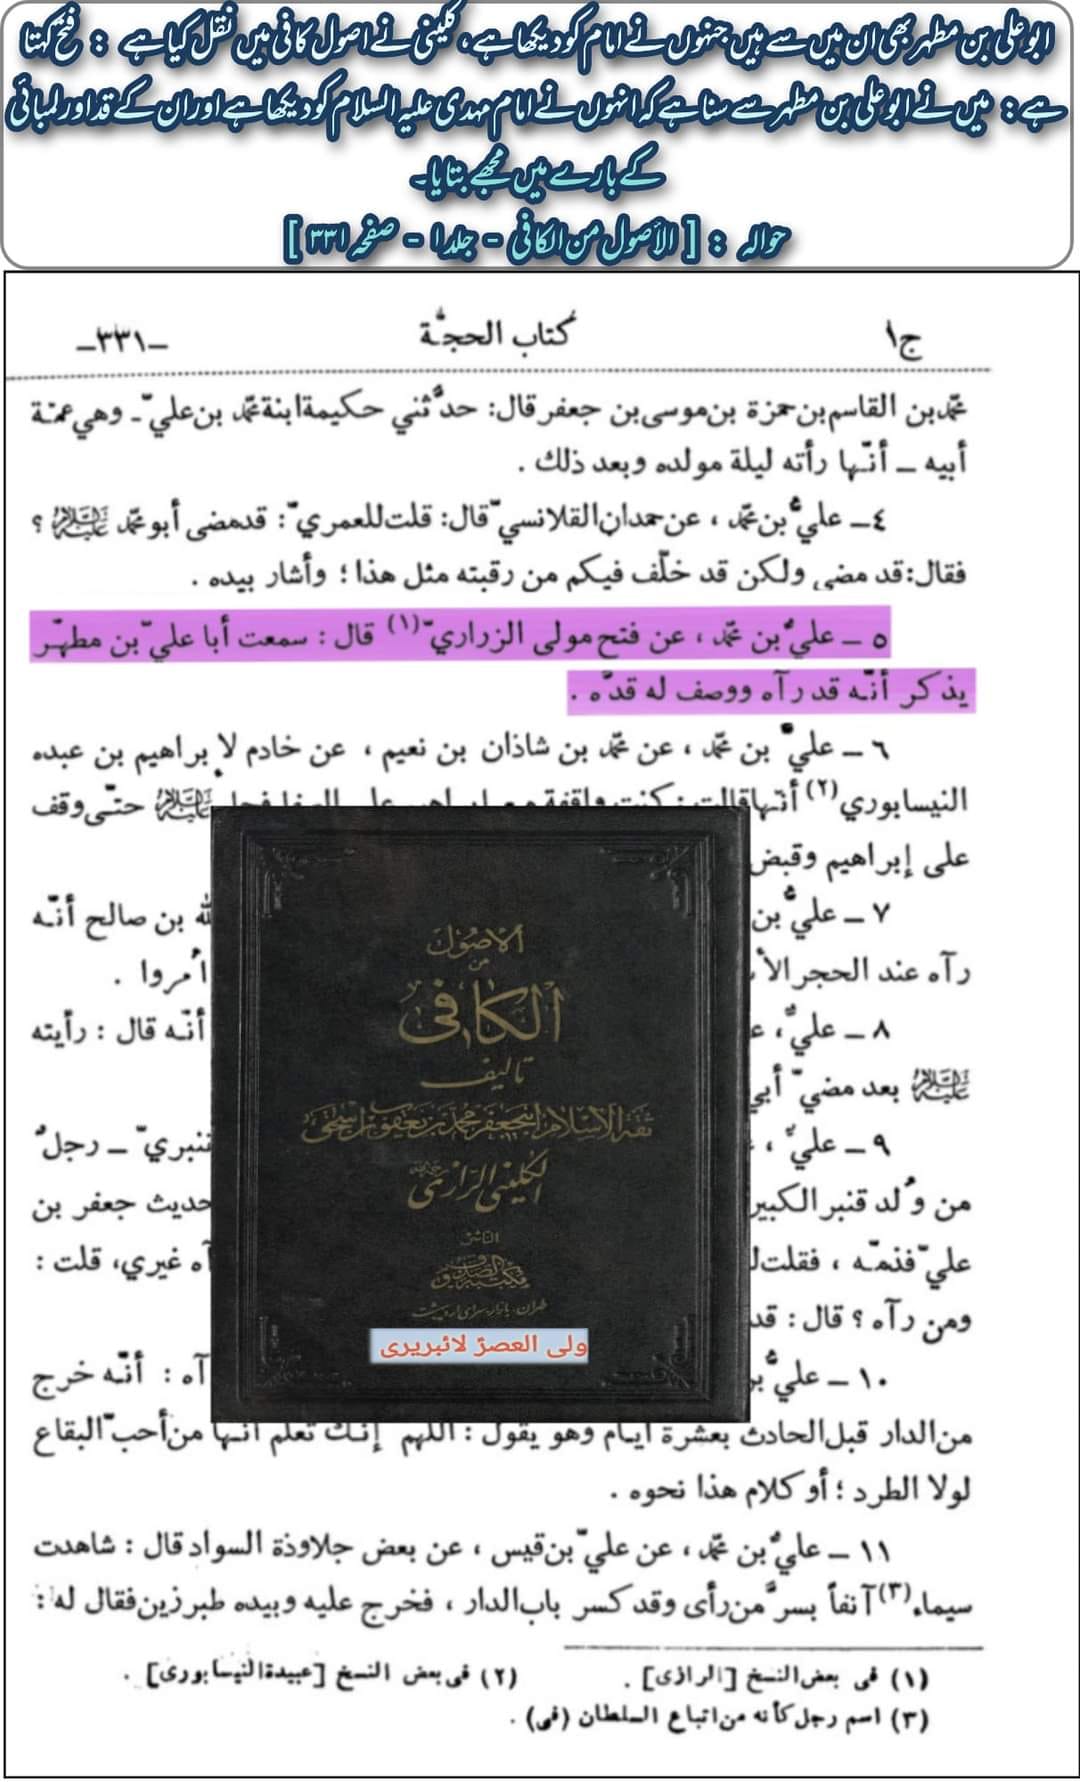 ابو علی بن مطہر بھی ان میں سے ہیں جنہوں نے امام کو دیکھا ہے ، کلینی نے اصول کافی میں نقل کیا ہے : فتح کہتا
ہے : میں نے ابو علی بن مطہر سے سنا ہے کہ انہوں نے امام مہدی علیہ السلام کو دیکھا ہے اور ان کے قد اور لمبائی
کے بارے میں مجھے بتایا۔
حوالہ : [ الأصول من الکافی - جلد ۱ - صفحہ ۳۳۱ ]
ج۱ كتاب الحجّة ـ۳۳۱ـ
محمّد بن القاسم بن حمزة بن موسى بن جعفر قال: حدَّثني حكيمة ابنة محمّد بن عليّ ـ وهي عمّة
أبيه ــ أنّها رأته ليلة مولده وبعد ذلك .
٤ــ عليُّ بن محمّد ، عن حمدان القلانسيّ قال: قلت للعمريّ: قد مضى أبو محمّد عليه السلام ؟
فقال: قد مضى ولكن قد خلّف فيكم من رقبته مثل هذا ؛ وأشار بيده .
٥ ــ عليُّ بن محمّد ، عن فتح مولى الزراريّ (١) قال : سمعت أبا عليّ بن مطهّر
يذكر أنّه قد رآه ووصف له قدّه .
٦ ــ عليُّ بن محمّد ، عن محمّد بن شاذان بن نعيم ، عن خادم لإبراهيم بن عبده
النيسابوري(٢) أنّها قالت : كنت واقفة مع إبراهيم على الصفا فجاء عليه السلام حتّى وقف
على إبراهيم وقبض
٧ ــ عليُّ بن الله بن صالح أنّه
رآه عند الحجر الأ اُمروا .
٨ ــ عليٌّ، ع أنّه قال : رأيته
عليه السلام بعد مضيّ أبي
٩ ــ عليٌّ ، قنبريّ ــ رجلٌ
من وُلد قنبر الكبير حديث جعفر بن
عليّ فذمّه ، فقلت ل آه غيري، قلت :
ومن رآه ؟ قال : قد
١٠ ــ عليُّ ب آه : أنّه خرج
من الدار قبل الحادث بعشرة أيّام وهو يقول : اللّهم إنّك تعلم أنّها من أحبّ البقاع
لولا الطرد ؛ أو كلام هذا نحوه .
١١ ــ عليُّ بن محمّد ، عن عليّ بن قيس ، عن بعض جلاوذة السواد قال : شاهدت
سيماء(٣) آنفاً بسرَّ من رأى وقد كسر باب الدار ، فخرج عليه وبيده طبرزين فقال له :
(١) فى بعض النسخ [الرازى] . (٢) فى بعض النسخ [عبيدة النيسابورى] .
(٣) اسم رجل كأنه من اتباع السلطان (فى) .
الاصول
من
الكافى
تاليف
ثقة الاسلام ابى جعفر محمد بن يعقوب بن اسحق
الكلينى الرازى
الناشر
مكتبة الصدوق
طهران - بازار سراى اردیبهشت
ولی العصرؑ لائبریری